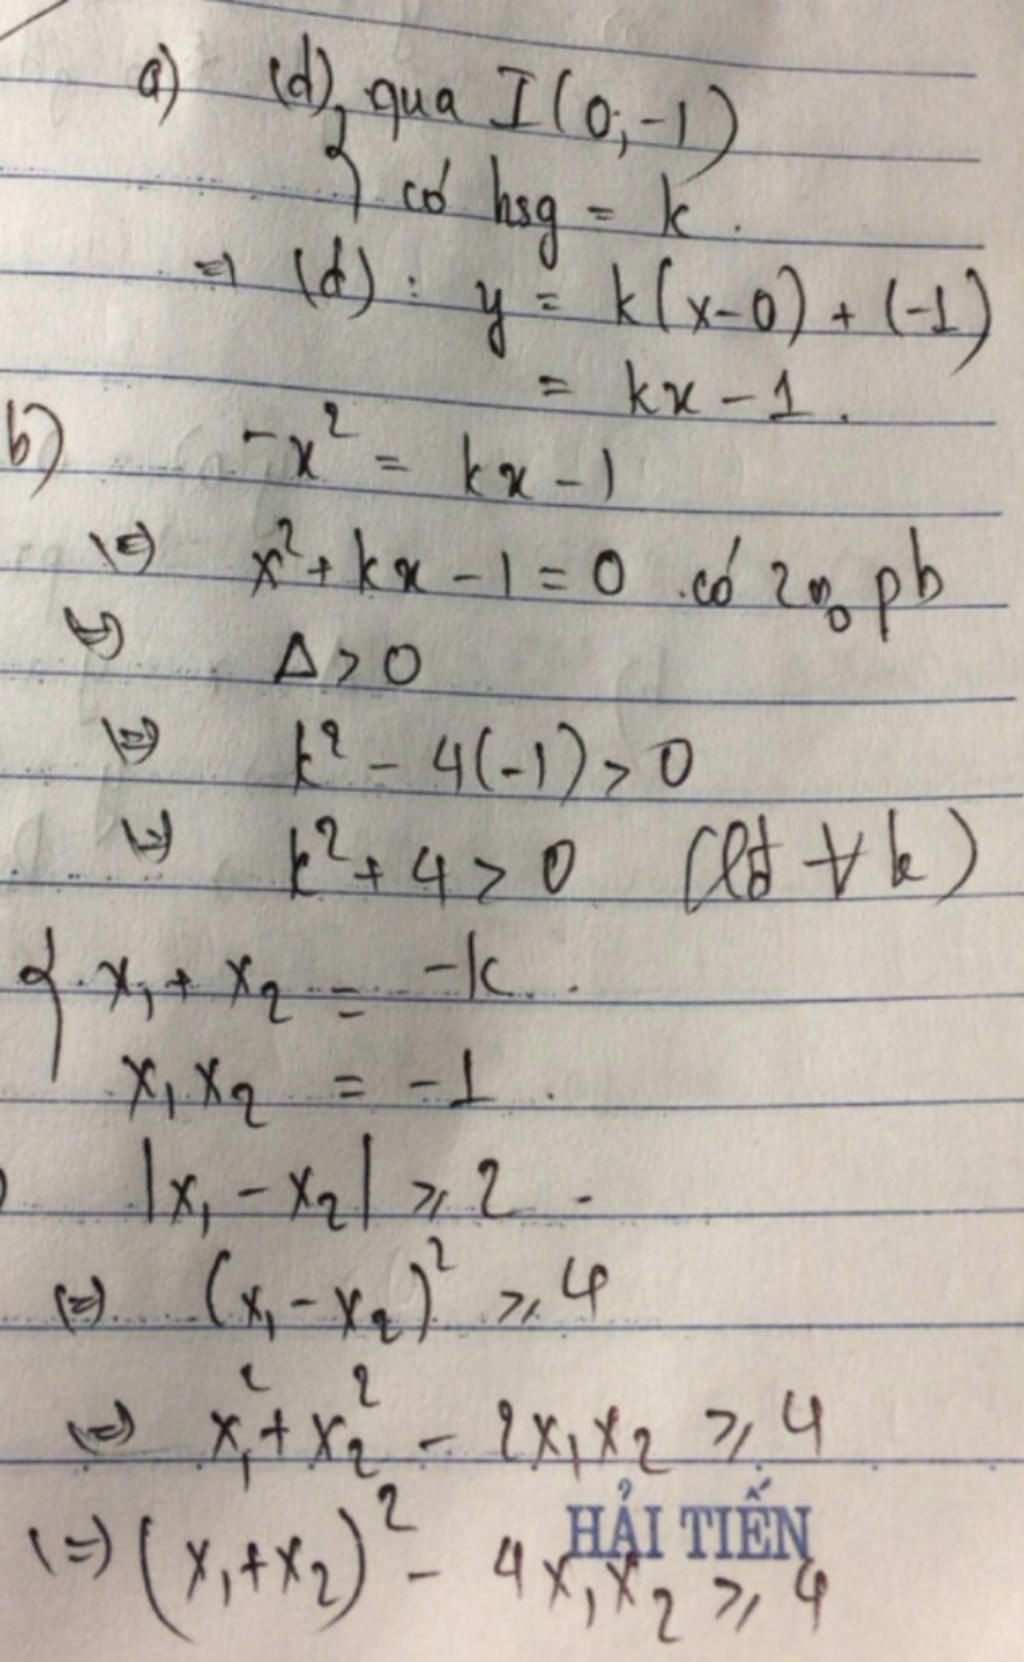 a) (d) { qua I(0;-1)
có hsg = k.
=> (d): y = k(x-0) + (-1)
= kx - 1.
b) -x² = kx - 1
<=> x² + kx - 1 = 0 có 2no pb
<=> Δ > 0
<=> k² - 4(-1) > 0
<=> k² + 4 > 0 (lđ ∀k)
{ x₁ + x₂ = -k.
x₁x₂ = -1.
|x₁ - x₂| ⩾ 2
<=> (x₁ - x₂)² ⩾ 4
<=> x₁² + x₂² - 2x₁x₂ ⩾ 4
HẢI TIẾN
<=> (x₁+x₂)² - 4x₁x₂ ⩾ 4